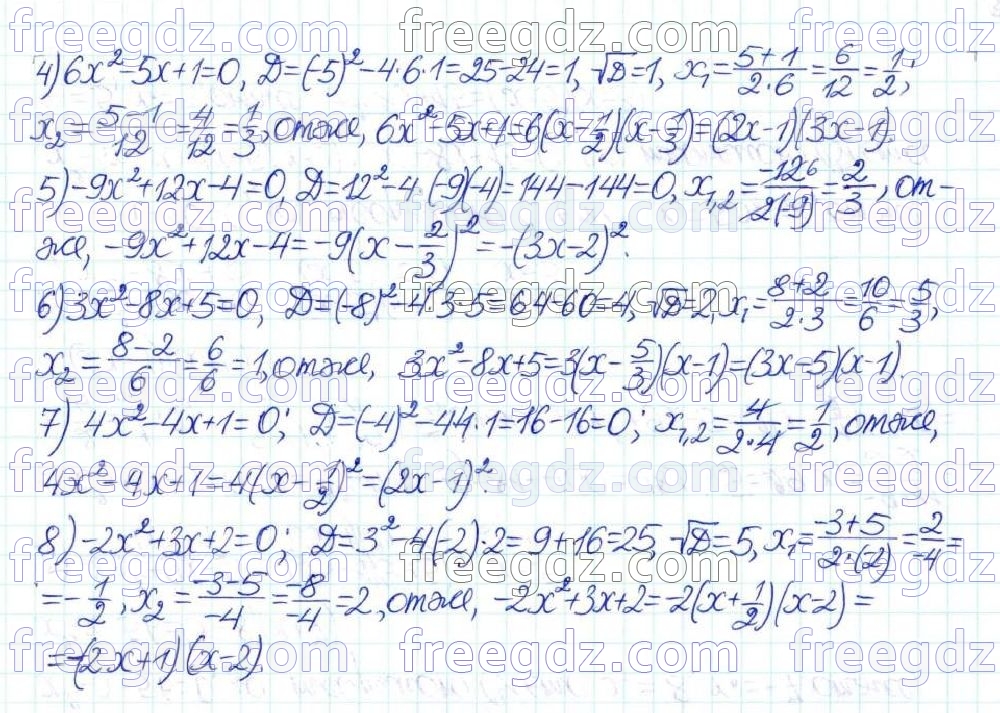 4) 6x²-5x+1=0, D=(-5)²-4·6·1=25-24=1, √D=1, x₁=(5+1)/(2·6)=6/12=1/2;
x₂=(5-1)/12=4/12=1/3, отже, 6x²-5x+1=6(x-1/2)(x-1/3)=(2x-1)(3x-1).
5) -9x²+12x-4=0, D=12²-4·(-9)(-4)=144-144=0, x₁,₂=-12/(2(-9))=2/3, от-
же, -9x²+12x-4=-9(x-2/3)²=-(3x-2)².
6) 3x²-8x+5=0, D=(-8)²-4·3·5=64-60=4, √D=2, x₁=(8+2)/(2·3)=10/6=5/3,
x₂=(8-2)/6=6/6=1, отже, 3x²-8x+5=3(x-5/3)(x-1)=(3x-5)(x-1).
7) 4x²-4x+1=0; D=(-4)²-4·4·1=16-16=0; x₁,₂=4/(2·4)=1/2, отже,
4x²-4x+1=4(x-1/2)²=(2x-1)².
8) -2x²+3x+2=0; D=3²-4(-2)·2=9+16=25, √D=5, x₁=(-3+5)/(2·(-2))=2/-4=
=-1/2, x₂=(-3-5)/-4=-8/-4=2, отже, -2x²+3x+2=-2(x+1/2)(x-2)=
=-(2x+1)(x-2).
freegdz.com